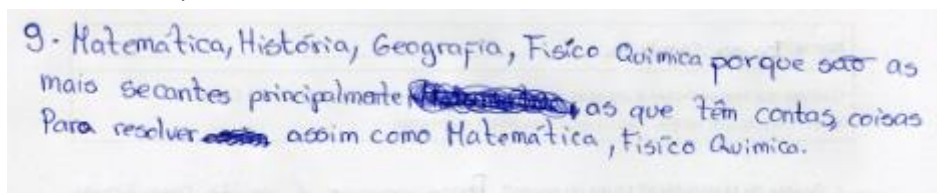 9. Matemática, História, Geografia, Fisíco Quimica porque são as
mais secantes principalmente as que têm contas, coisas
Para resolver assim como Matemática, Fisíco Quimica.